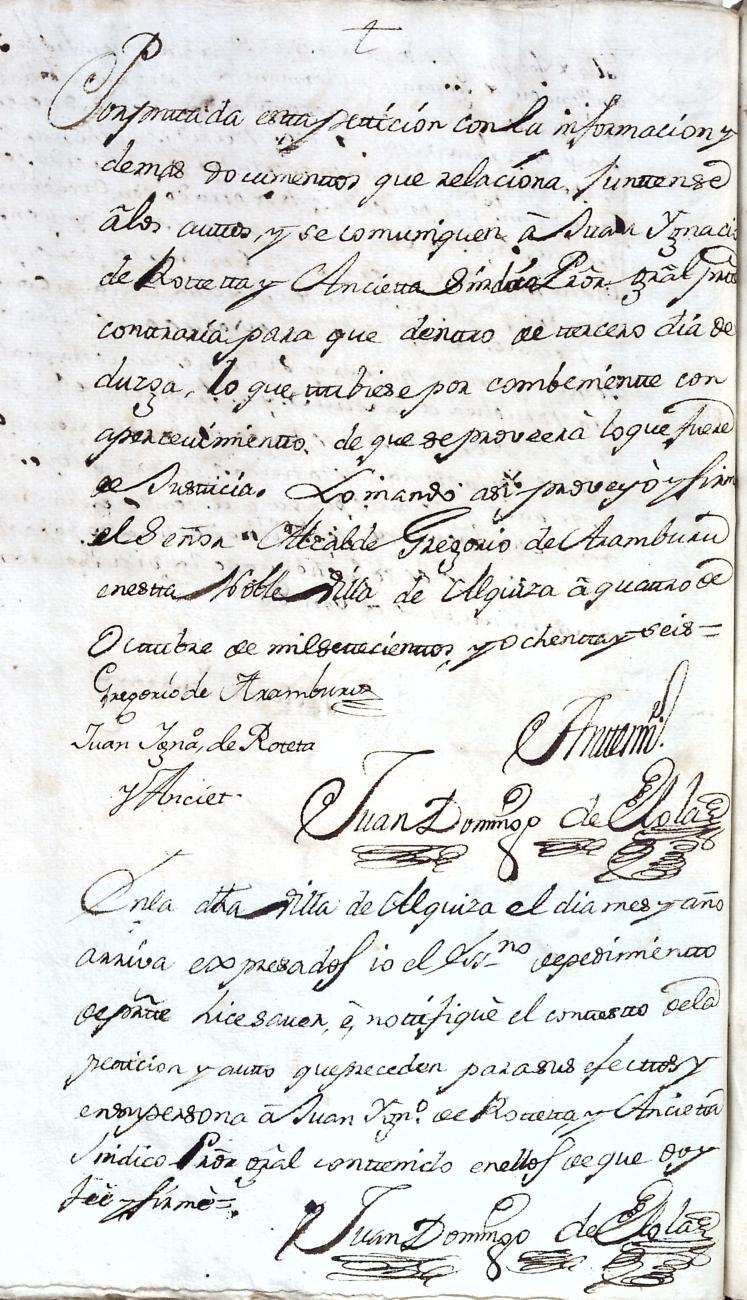 Por presenttada estta petticíon con la informacíon y
demas documenttos que relacíona, Junttense
â los auttos, y se comuniquen â Juan Ygnacio
de Rottetta y Ancietta Síndico Prõr grãl partte
conttraría para que denttro de ttercero día de
duzga, lo que ttubiese por combeníentte con
apercevimíentto, de que se proveerà lo que fuere
de Justticia. Lo mandò asi proveyò y firmò
el Señor Alcalde Gregorío de Aramburu
en estta Noble Villa de Alquiza â quattro de
Octtubre de mil settecienttos y ochentta y seis=
Gregorío de Aramburu
Juan Ygnº, de Roteta
y Anciet
Anttemi
Juan Domingo de Elola
En la dhã Villa de Alquiza el dia mes y año
arríva expresados io el Essno de pedimientto
de partte hice saver, è nottifiquè el conttestto de la
petticion y autto que preceden para sus efecttos y
en su persona â Juan Ygnº de Rottetta y Anciettâ
Sindico Prõr grãl conttenido en ellos de que doy
feè y firmè=
Juan Domingo de Elola